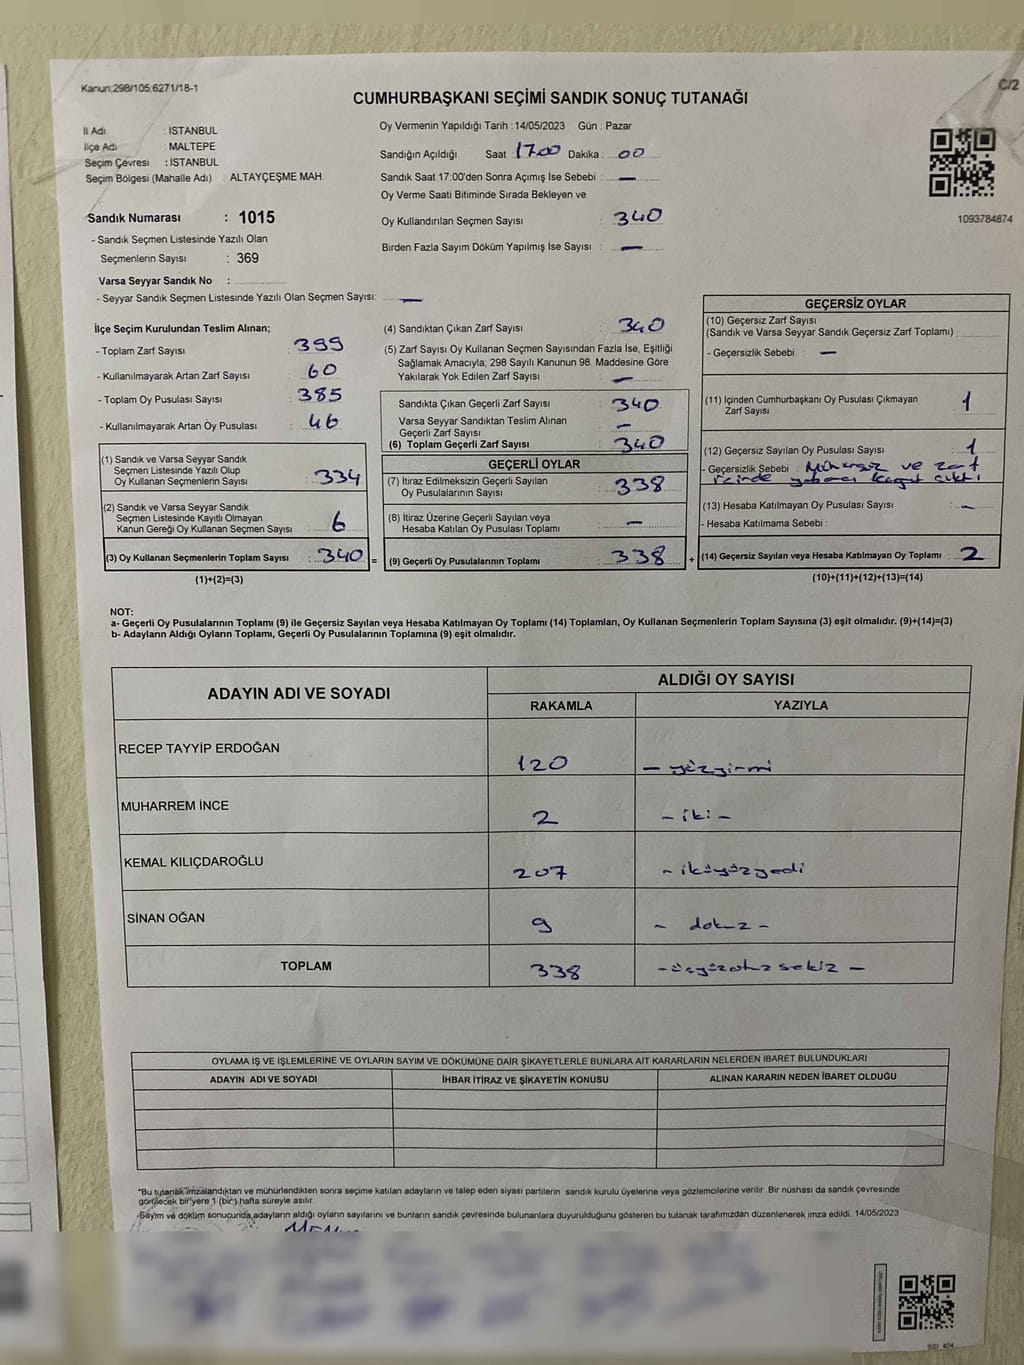 Kanun:298/105;6271/18-1
C/2
CUMHURBAŞKANI SEÇİMİ SANDIK SONUÇ TUTANAĞI
İl Adı : İSTANBUL
İlçe Adı : MALTEPE
Seçim Çevresi : İSTANBUL
Seçim Bölgesi (Mahalle Adı) : ALTAYÇEŞME MAH.
Oy Vermenin Yapıldığı Tarih : 14/05/2023 Gün : Pazar
Sandığın Açıldığı Saat 17.00 Dakika : 00
Sandık Saat 17:00'den Sonra Açımış İse Sebebi : —
Oy Verme Saati Bitiminde Sırada Bekleyen ve
Oy Kullandırılan Seçmen Sayısı : 340
Birden Fazla Sayım Döküm Yapılmış İse Sayısı : —
1093784874
Sandık Numarası : 1015
- Sandık Seçmen Listesinde Yazılı Olan
Seçmenlerin Sayısı : 369
Varsa Seyyar Sandık No :
- Seyyar Sandık Seçmen Listesinde Yazılı Olan Seçmen Sayısı: —
İlçe Seçim Kurulundan Teslim Alınan;
- Toplam Zarf Sayısı : 399
- Kullanılmayarak Artan Zarf Sayısı : 60
- Toplam Oy Pusulası Sayısı : 385
- Kullanılmayarak Artan Oy Pusulası : 46
(1) Sandık ve Varsa Seyyar Sandık
Seçmen Listesinde Yazılı Olup
Oy Kullanan Seçmenlerin Sayısı : 334
(2) Sandık ve Varsa Seyyar Sandık
Seçmen Listesinde Kayıtlı Olmayan
Kanun Gereği Oy Kullanan Seçmen Sayısı : 6
(3) Oy Kullanan Seçmenlerin Toplam Sayısı : 340 =
(1)+(2)=(3)
(4) Sandıktan Çıkan Zarf Sayısı : 340
(5) Zarf Sayısı Oy Kullanan Seçmen Sayısından Fazla İse, Eşitliği
Sağlamak Amacıyla; 298 Sayılı Kanunun 98. Maddesine Göre
Yakılarak Yok Edilen Zarf Sayısı : —
Sandıkta Çıkan Geçerli Zarf Sayısı : 340
Varsa Seyyar Sandıktan Teslim Alınan
Geçerli Zarf Sayısı : —
(6) Toplam Geçerli Zarf Sayısı : 340
GEÇERLİ OYLAR
(7) İtiraz Edilmeksizin Geçerli Sayılan
Oy Pusulalarının Sayısı : 338
(8) İtiraz Üzerine Geçerli Sayılan veya
Hesaba Katılan Oy Pusulası Toplamı : —
(9) Geçerli Oy Pusulalarının Toplamı : 338 +
GEÇERSİZ OYLAR
(10) Geçersiz Zarf Sayısı
(Sandık ve Varsa Seyyar Sandık Geçersiz Zarf Toplamı) :
- Geçersizlik Sebebi : —
(11) İçinden Cumhurbaşkanı Oy Pusulası Çıkmayan
Zarf Sayısı : 1
(12) Geçersiz Sayılan Oy Pusulası Sayısı : 1
- Geçersizlik Sebebi : Mühürsüz ve zarf
içinde yabancı kağıt çıktı
(13) Hesaba Katılmayan Oy Pusulası Sayısı : —
- Hesaba Katılmama Sebebi :
(14) Geçersiz Sayılan veya Hesaba Katılmayan Oy Toplamı : 2
(10)+(11)+(12)+(13)=(14)
NOT:
a- Geçerli Oy Pusulalarının Toplamı (9) ile Geçersiz Sayılan veya Hesaba Katılmayan Oy Toplamı (14) Toplamları, Oy Kullanan Seçmenlerin Toplam Sayısına (3) eşit olmalıdır. (9)+(14)=(3)
b- Adayların Aldığı Oyların Toplamı, Geçerli Oy Pusulalarının Toplamına (9) eşit olmalıdır.
ADAYIN ADI VE SOYADI
ALDIĞI OY SAYISI
RAKAMLA YAZIYLA
RECEP TAYYİP ERDOĞAN 120 — yüzyirmi
MUHARREM İNCE 2 - iki -
KEMAL KILIÇDAROĞLU 207 - ikiyüzyedi
SİNAN OĞAN 9 - dokuz -
TOPLAM 338 - üçyüzotuzsekiz —
OYLAMA İŞ VE İŞLEMLERİNE VE OYLARIN SAYIM VE DÖKÜMÜNE DAİR ŞİKAYETLERLE BUNLARA AİT KARARLARIN NELERDEN İBARET BULUNDUKLARI
ADAYIN ADI VE SOYADI İHBAR İTİRAZ VE ŞİKAYETİN KONUSU ALINAN KARARIN NEDEN İBARET OLDUĞU
*Bu tutanak imzalandıktan ve mühürlendikten sonra seçime katılan adayların ve talep eden siyasi partilerin sandık kurulu üyelerine veya gözlemcilerine verilir. Bir nüshası da sandık çevresinde
görülecek bir yere 1 (bir) hafta süreyle asılır.
-Sayım ve döküm sonucunda adayların aldığı oyların sayılarını ve bunların sandık çevresinde bulunanlara duyurulduğunu gösteren bu tutanak tarafımızdan düzenlenerek imza edildi. 14/05/2023